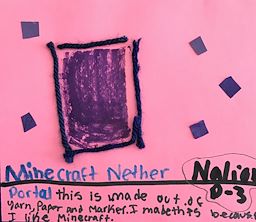 Minecraft Nether
Portal this is made out of
Yarn, Paper and Marker. I made this because
I like Minecraft.
D-3